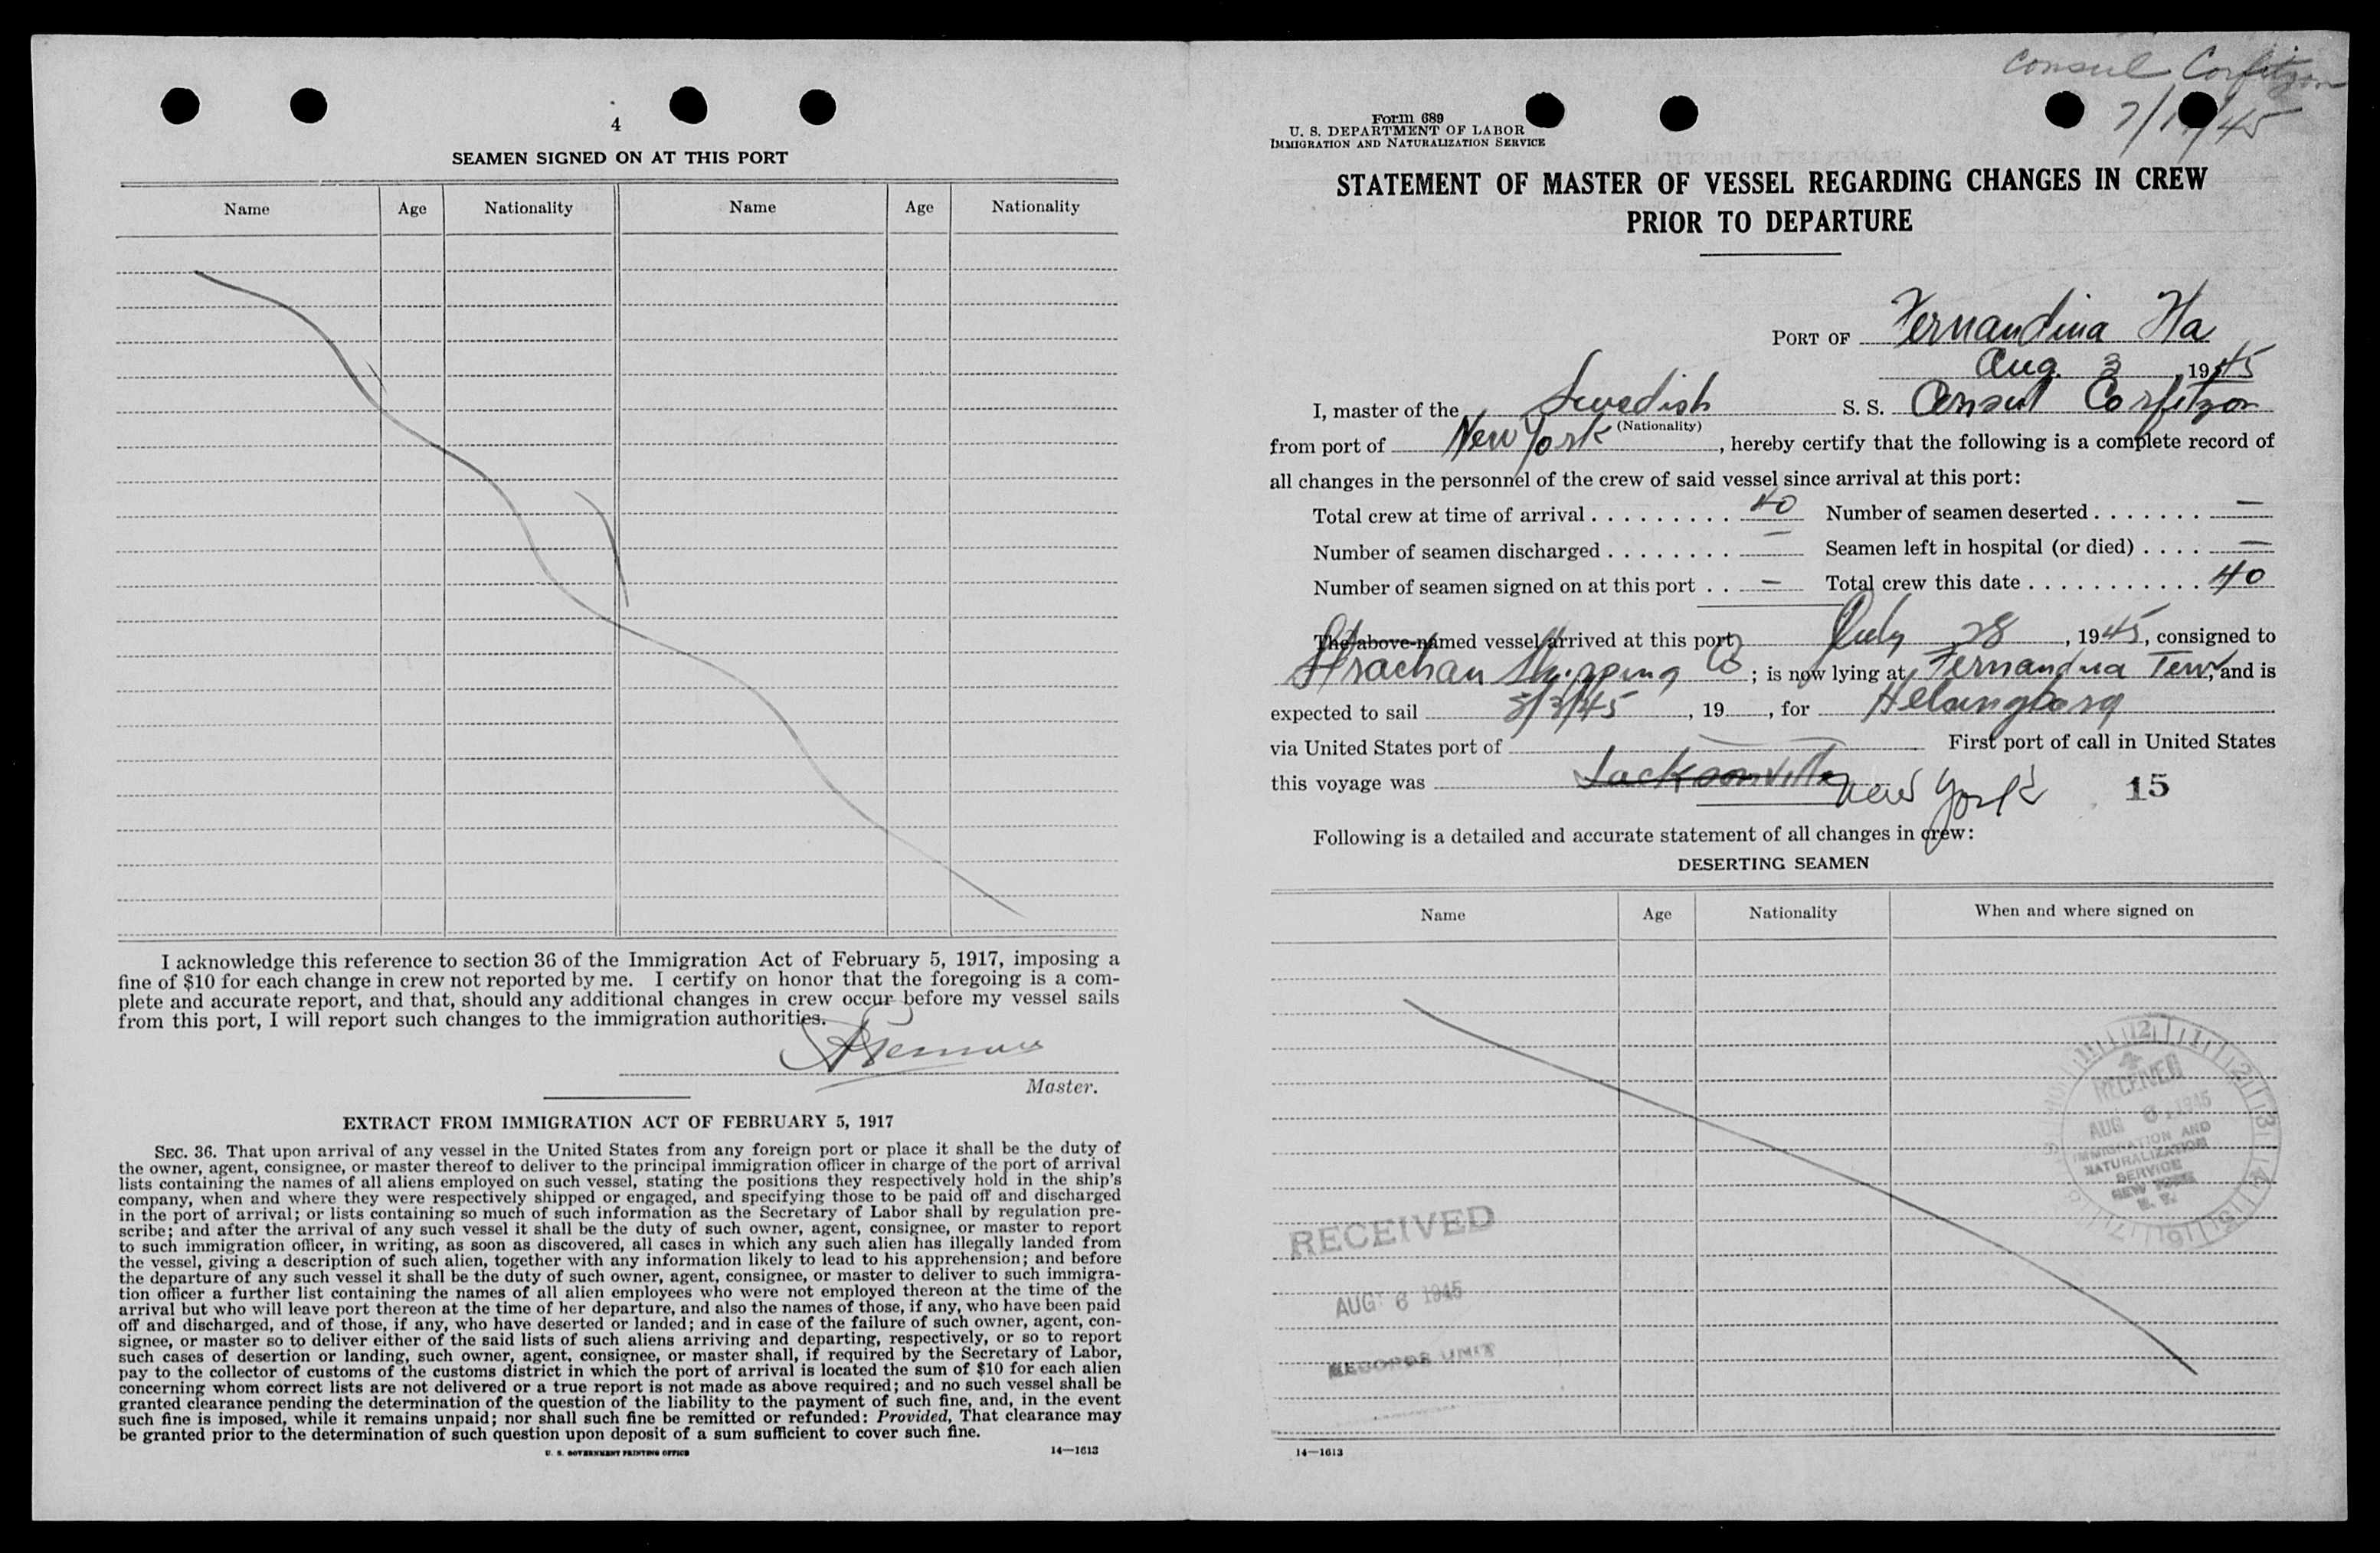 4
SEAMEN SIGNED ON AT THIS PORT
Name Age Nationality Name Age Nationality
I acknowledge this reference to section 36 of the Immigration Act of February 5, 1917, imposing a
fine of $10 for each change in crew not reported by me. I certify on honor that the foregoing is a com-
plete and accurate report, and that, should any additional changes in crew occur before my vessel sails
from this port, I will report such changes to the immigration authorities.
Master.
EXTRACT FROM IMMIGRATION ACT OF FEBRUARY 5, 1917
SEC. 36. That upon arrival of any vessel in the United States from any foreign port or place it shall be the duty of
the owner, agent, consignee, or master thereof to deliver to the principal immigration officer in charge of the port of arrival
lists containing the names of all aliens employed on such vessel, stating the positions they respectively hold in the ship's
company, when and where they were respectively shipped or engaged, and specifying those to be paid off and discharged
in the port of arrival; or lists containing so much of such information as the Secretary of Labor shall by regulation pre-
scribe; and after the arrival of any such vessel it shall be the duty of such owner, agent, consignee, or master to report
to such immigration officer, in writing, as soon as discovered, all cases in which any such alien has illegally landed from
the vessel, giving a description of such alien, together with any information likely to lead to his apprehension; and before
the departure of any such vessel it shall be the duty of such owner, agent, consignee, or master to deliver to such immigra-
tion officer a further list containing the names of all alien employees who were not employed thereon at the time of the
arrival but who will leave port thereon at the time of her departure, and also the names of those, if any, who have been paid
off and discharged, and of those, if any, who have deserted or landed; and in case of the failure of such owner, agent, con-
signee, or master so to deliver either of the said lists of such aliens arriving and departing, respectively, or so to report
such cases of desertion or landing, such owner, agent, consignee, or master shall, if required by the Secretary of Labor,
pay to the collector of customs of the customs district in which the port of arrival is located the sum of $10 for each alien
concerning whom correct lists are not delivered or a true report is not made as above required; and no such vessel shall be
granted clearance pending the determination of the question of the liability to the payment of such fine, and, in the event
such fine is imposed, while it remains unpaid; nor shall such fine be remitted or refunded: Provided, That clearance may
be granted prior to the determination of such question upon deposit of a sum sufficient to cover such fine.
U. S. GOVERNMENT PRINTING OFFICE 14—1613
Consul Corfitzon
Form 689
U. S. DEPARTMENT OF LABOR
IMMIGRATION AND NATURALIZATION SERVICE
STATEMENT OF MASTER OF VESSEL REGARDING CHANGES IN CREW
PRIOR TO DEPARTURE
PORT OF Fernandina Fla
Aug. 3, 1945
I, master of the Swedish S. S. Consul Corfitzon
(Nationality)
from port of New York, hereby certify that the following is a complete record of
all changes in the personnel of the crew of said vessel since arrival at this port:
Total crew at time of arrival . . . . . . . . . 40 Number of seamen deserted . . . . . . . —
Number of seamen discharged . . . . . . . . — Seamen left in hospital (or died) . . . . —
Number of seamen signed on at this port . . — Total crew this date . . . . . . . . . . . 40
The above-named vessel arrived at this port July 28, 1945, consigned to
Strachan Shipping Co; is now lying at Fernandina Term, and is
expected to sail 8/3/45, 19 , for Helsingborg
via United States port of — First port of call in United States
this voyage was Jacksonville New York 15
Following is a detailed and accurate statement of all changes in crew:
DESERTING SEAMEN
Name Age Nationality When and where signed on
RECEIVED
AUG 6 1945
IMMIGRATION AND
NATURALIZATION
SERVICE
NEW YORK
N. Y.
RECEIVED
AUG 6 1945
RECORDS UNIT
14—1613